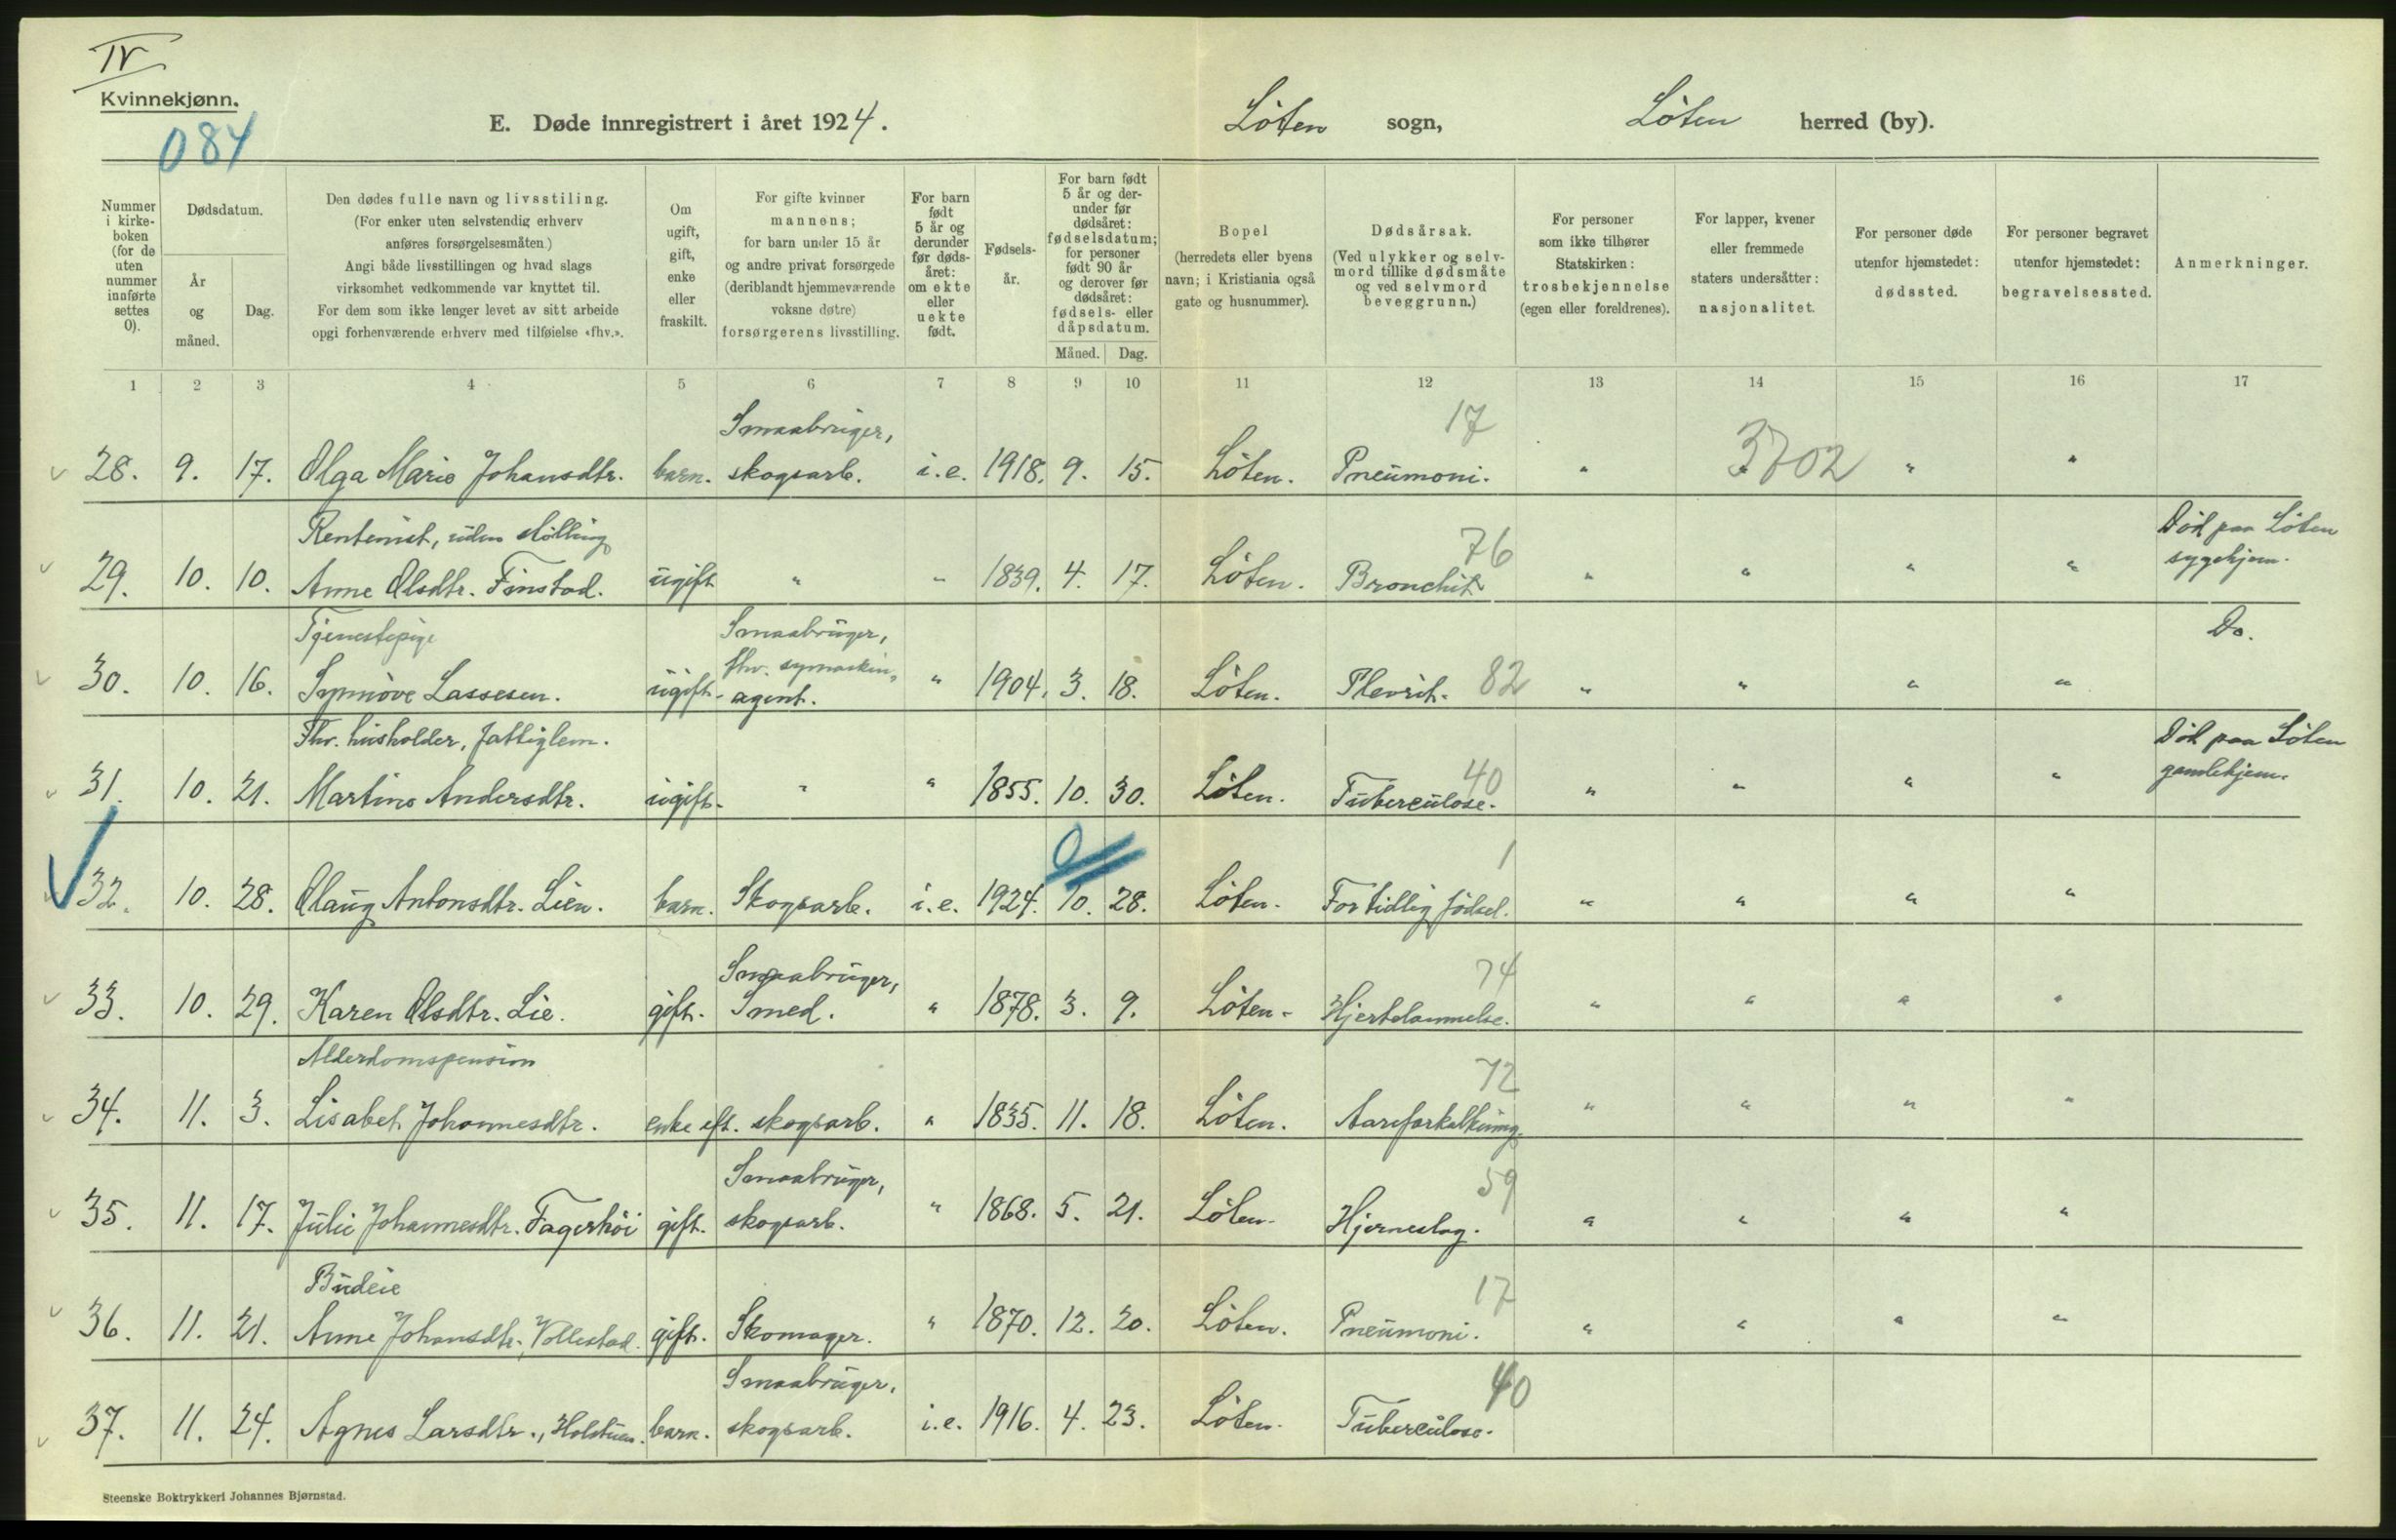 IV
Kvinnekjønn.
084
E. Døde innregistrert i året 1924.
Löten sogn,
Löten herred (by).
Nummer i kirke-boken (for de uten nummer innførte settes 0).
Dødsdatum.
År og måned.
Dag.
Den dødes fulle navn og livsstiling.
(For enker uten selvstendig erhverv
anføres forsørgelsesmåten.)
Angi både livsstillingen og hvad slags
virksomhet vedkommende var knyttet til.
For dem som ikke lenger levet av sitt arbeide
opgi forhenværende erhverv med tilføielse «fhv.».
Om ugift, gift, enke eller fraskilt.
For gifte kvinner
mannens;
for barn under 15 år
og andre privat forsørgede
(deriblandt hjemmeværende
voksne døtre)
forsørgerens livsstilling.
For barn født 5 år og derunder før døds-året: om ekte eller uekte født.
Fødsels-år.
For barn født 5 år og der-under før dødsåret: fødselsdatum; for personer født 90 år og derover før dødsåret: fødsels- eller dåpsdatum.
Måned. Dag.
Bopel
(herredets eller byens
navn; i Kristiania også
gate og husnummer).
Dødsårsak.
(Ved ulykker og selv-
mord tillike dødsmåte
og ved selvmord
beveggrunn.)
For personer
som ikke tilhører
Statskirken:
trosbekjennelse
(egen eller foreldrenes).
For lapper, kvener
eller fremmede
staters undersåtter:
nasjonalitet.
For personer døde
utenfor hjemstedet:
dødssted.
For personer begravet
utenfor hjemstedet:
begravelsessted.
Anmerkninger.
1 2 3 4 5 6 7 8 9 10 11 12 13 14 15 16 17
Smaabrüger, 17
28. 9. 17. Olga Marie Johansdtr. barn. skogsarb. i.e. 1918. 9. 15. Löten. Pneümoni. " 3702 " "
Rentenist, üden stölling 76 Död paa Löten
29. 10. 10. Anne Olsdtr. Finstad. ügift " " 1839. 4. 17. Löten. Bronchit " " " " sygehjem.
Tjenestepige Smaabrüger, Do.
fhv. symaskin-
30. 10. 16. Synnöve Lassesen. ügift. agent. " 1904. 3. 18. Löten. Plevrit. 82 " " " "
Fhv. hüsholder, fattiglem. Död paa Löten
31. 10. 21. Martine Andersdtr. ügift. " " 1855. 10. 30. Löten. Tübercülose. 40 " " " " gamlehjem.
0 1
32. 10. 28. Olaüg Antonsdtr. Lien. barn. Skogsarb. i.e. 1924. 10. 28. Löten. For tidlig födsel. " " " "
Smaabrüger, 74
33. 10. 29. Karen Olsdtr. Lie. gift. Smed. " 1878. 3. 9. Löten. Hjertelammelse. " " " "
Alderdomspension 72
34. 11. 3. Lisabet Johannesdtr. enke eft. skogsarb. " 1835. 11. 18. Löten. Aareforkalkning. " " " "
Smaabrüger, 59
35. 11. 17. Jülie Johannesdtr. Fagerhöi gift. skogsarb. " 1868. 5. 21. Löten. Hjerneslag. " " " "
Büdeie 17
36. 11. 21. Anne Johansdtr., Vollestad. gift. Skomager. " 1870. 12. 20. Löten. Pneümoni. " " " "
Smaabrüger, 40
37. 11. 24. Agnes Larsdtr., Holstüen. barn. skogsarb. i.e. 1916. 4. 23. Löten. Tübercülose.
Steenske Boktrykkeri Johannes Bjørnstad.